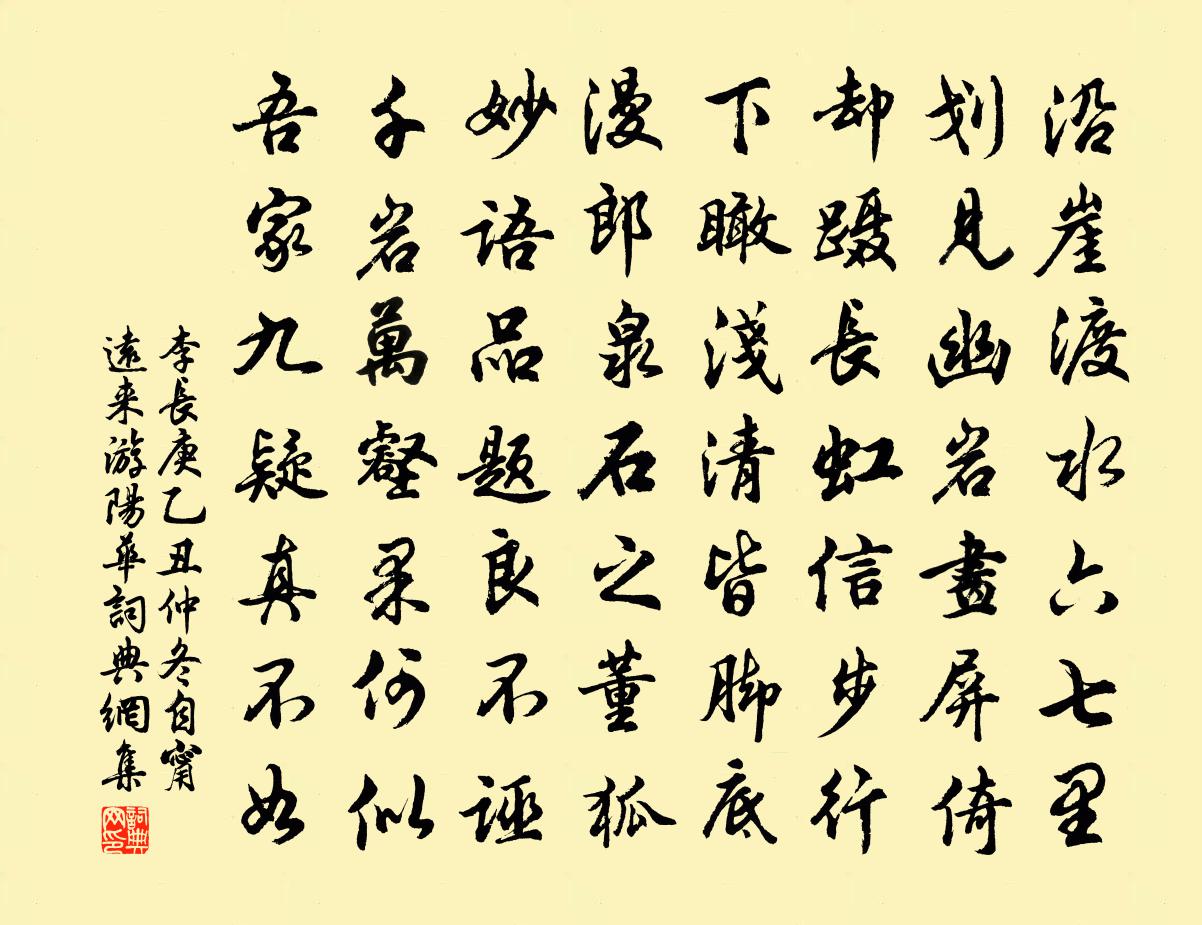 沿崖渡水六七里
划見幽岩畫屏倚
却蹑長虹信步行
下瞰淺清皆脚底
漫郎泉石之董狐
妙語品题良不誣
千岩萬壑果何似
吾家九疑真不如
李長庚乙丑仲冬自甯
遠来游陽華詞典網集
詞典
网印